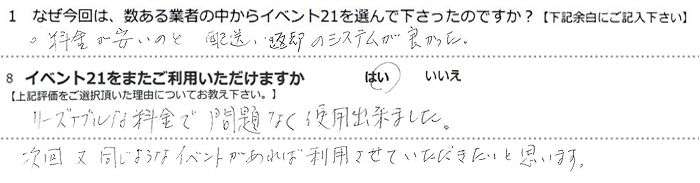 1 なぜ今回は、数ある業者の中からイベント21を選んで下さったのですか？【下記余白にご記入下さい】
。料金が安いのと 配送、返却のシステムが良かった。
8 イベント21をまたご利用いただけますか はい いいえ
【上記評価をご選択頂いた理由についてお教え下さい。】
リーズナブルな料金で 問題なく使用出来ました。
次回又同じようなイベントがあれば利用させていただきたいと思います。